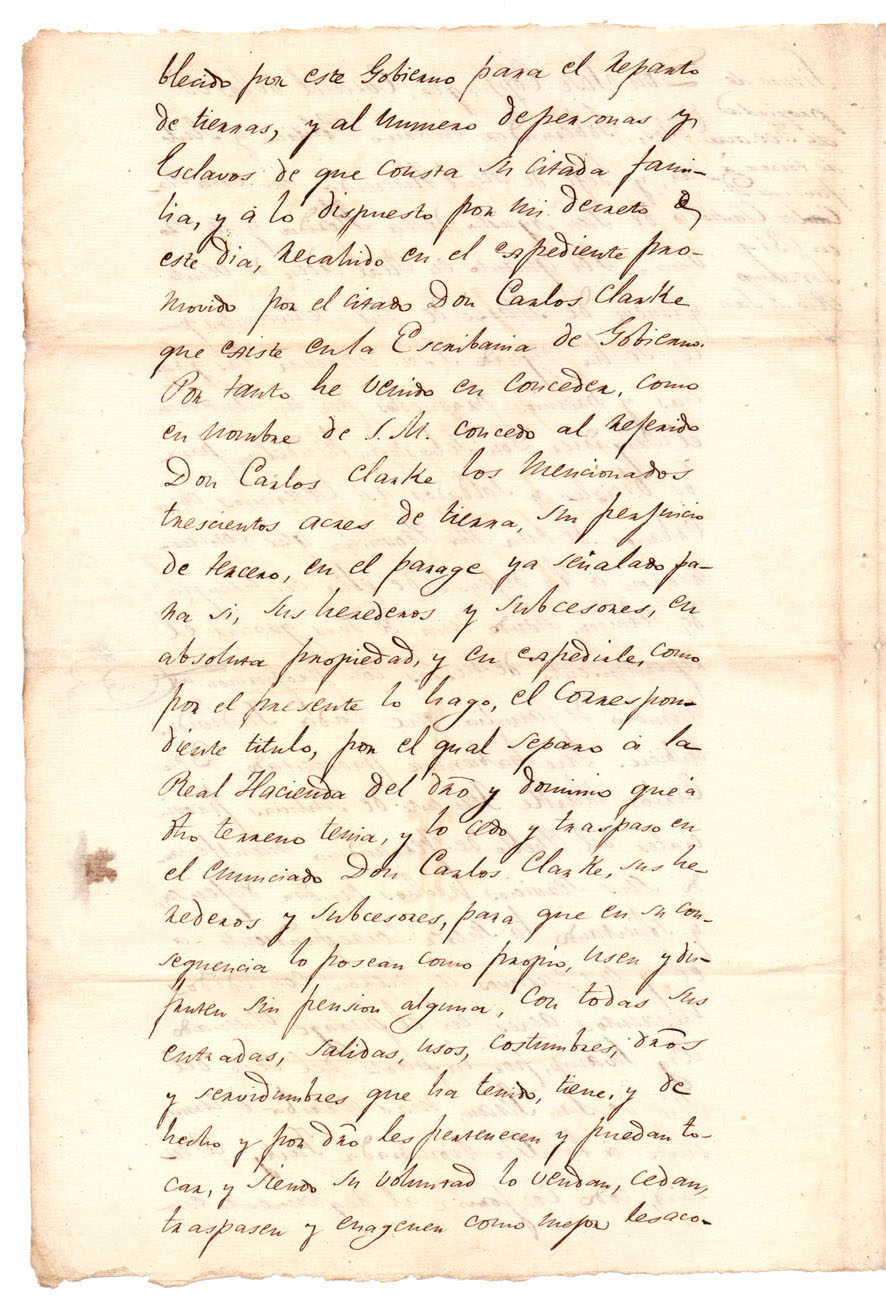 blecido por este Gobierno para el reparto
de tierras, y al numero de personas y
Esclavos de que consta su citada fami-
lia, y á lo dispuesto por mi decreto de
este dia, recahido en el expediente pro-
movido por el citado Don Carlos Clarke
que existe en la Escribania de Gobierno.
Por tanto he venido en conceder, como
en nombre de S. M. concedo al referido
Don Carlos Clarke los mencionados
trescientos acres de tierra, sin perjuicio
de tercero, en el parage ya señalado pa-
ra si, sus herederos y subcesores, en
absoluta propiedad, y en expedirle, como
por el presente lo hago, el correspon-
diente titulo, por el qual separo á la
Real Hacienda del dro y dominio que á
dho terreno tenia, y lo cedo y traspaso en
el enunciado Don Carlos Clarke, sus he-
rederos y subcesores, para que en su con-
sequencia lo posean como propio, usen y dis-
fruten sin pension alguna, con todas sus
entradas, salidas, usos, costumbres, dros
y servidumbres que ha tenido, tiene, y de
hecho y por dro les pertenecen y puedan to-
car, y siendo su voluntad lo vendan, cedan,
traspasen y enagenen como mejor les aco-